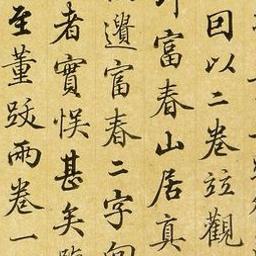 回以二卷竝觀
富春山居真
遺富春二字向
者實悞甚矣
至董跋兩卷一